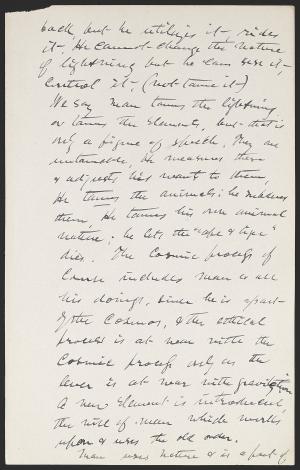 back, but he utilizes it, rides
it. He cannot change the nature
of lightning but he can use it,
control it, (not tame it)
We say man tames the lightning
or tames the elements, but that is
only a figure of speech. They are
untamable, he measures them
& adjusts his want to them,
He tames the animals; he
them, He tames his own animal
nature; he lets the "ape & tiger"
die. The Cosmic process of
course includes man & all
his doings, since he is a part
of the Cosmos, & the ethical
process is at war with the
Cosmic process only as the
lever is at war with gravitation
A new element is introduced,
the will of man which works
upon & uses the old order.
Man uses nature & is a part of